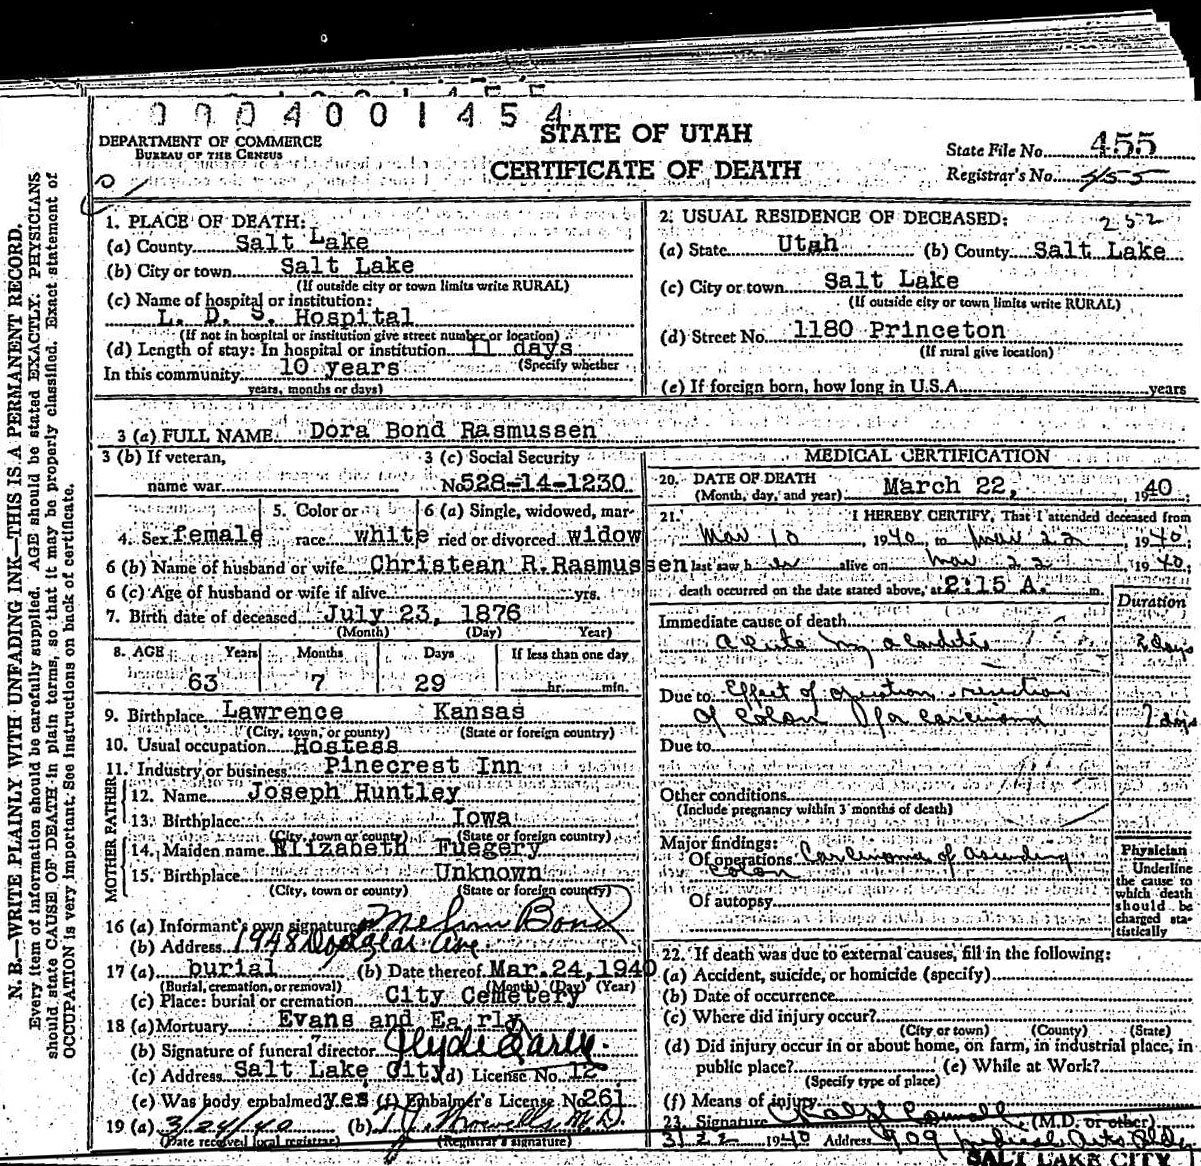 0004001454
STATE OF UTAH
CERTIFICATE OF DEATH
DEPARTMENT OF COMMERCE
BUREAU OF THE CENSUS
State File No. 455
Registrar's No. 455
N. B.—WRITE PLAINLY WITH UNFADING INK—THIS IS A PERMANENT RECORD.
Every item of information should be carefully supplied. AGE should be stated EXACTLY. PHYSICIANS
should state CAUSE OF DEATH in plain terms, so that it may be properly classified. Exact statement of
OCCUPATION is very important. See instructions on back of certificate.
1. PLACE OF DEATH:
(a) County Salt Lake
(b) City or town Salt Lake
(If outside city or town limits write RURAL)
(c) Name of hospital or institution:
L. D. S. Hospital
(If not in hospital or institution give street number or location)
(d) Length of stay: In hospital or institution 11 days
(Specify whether
In this community 10 years
years, months or days)
2. USUAL RESIDENCE OF DECEASED: 252
(a) State Utah (b) County Salt Lake
(c) City or town Salt Lake
(If outside city or town limits write RURAL)
(d) Street No. 1180 Princeton
(If rural give location)
(e) If foreign born, how long in U.S.A. years
3 (a) FULL NAME Dora Bond Rasmussen
3 (b) If veteran,
name war
3 (c) Social Security
No. 528-14-1230
4. Sex female
5. Color or
race white
6 (a) Single, widowed, mar-
ried or divorced widow
6 (b) Name of husband or wife Christean R. Rasmussen
6 (c) Age of husband or wife if alive yrs.
7. Birth date of deceased July 23, 1876
(Month) (Day) Year)
8. AGE Years Months Days If less than one day
63 7 29 hr. min.
9. Birthplace Lawrence Kansas
(City, town, or county) (State or foreign country)
10. Usual occupation Hostess
11. Industry or business Pinecrest Inn
FATHER
12. Name Joseph Huntley
13. Birthplace Iowa
(City, town or county) (State or foreign country)
MOTHER
14. Maiden name Elizabeth Fuegery
15. Birthplace Unknown
(City, town or county) (State or foreign country)
16 (a) Informant's own signature Melvin Bond
(b) Address 1948 Douglas Ave.
17 (a) burial (b) Date thereof Mar. 24, 1940
(Burial, cremation, or removal) (Month) (Day) (Year)
(c) Place: burial or cremation City Cemetery
18 (a) Mortuary Evans and Early
(b) Signature of funeral director Clyde Early
(c) Address Salt Lake City (d) License No. 12
(e) Was body embalmed yes (f) Embalmer's License No. 261
19 (a) 3/24/40 (b) M.D.
(Date received local registrar) (Registrar's signature)
MEDICAL CERTIFICATION
20. DATE OF DEATH
(Month, day, and year) March 22, 1940
21. I HEREBY CERTIFY, That I attended deceased from
Mar 10, 1940, to Mar 22, 1940,
I last saw her alive on Mar 22, 1940,
death occurred on the date stated above, at 2:15 A. m.
Duration
Immediate cause of death
Acute myocarditis 2 days
Due to Effect of operation - resection
of colon for carcinoma 7 days
Due to
Other conditions
(Include pregnancy within 3 months of death)
Major findings:
Of operations Carcinoma of ascending
colon
Of autopsy
Physician
Underline
the cause to
which death
should be
charged sta-
tistically
22. If death was due to external causes, fill in the following:
(a) Accident, suicide, or homicide (specify)
(b) Date of occurrence
(c) Where did injury occur?
(City or town) (County) (State)
(d) Did injury occur in or about home, on farm, in industrial place, in
public place? (e) While at Work?
(Specify type of place)
(f) Means of injury
23. Signature Ralph (M.D. or other)
3/22 1940 Address 909 Medical Arts Bldg
SALT LAKE CITY